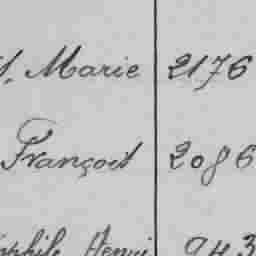 Marie 2176
François 2086
Henri 943